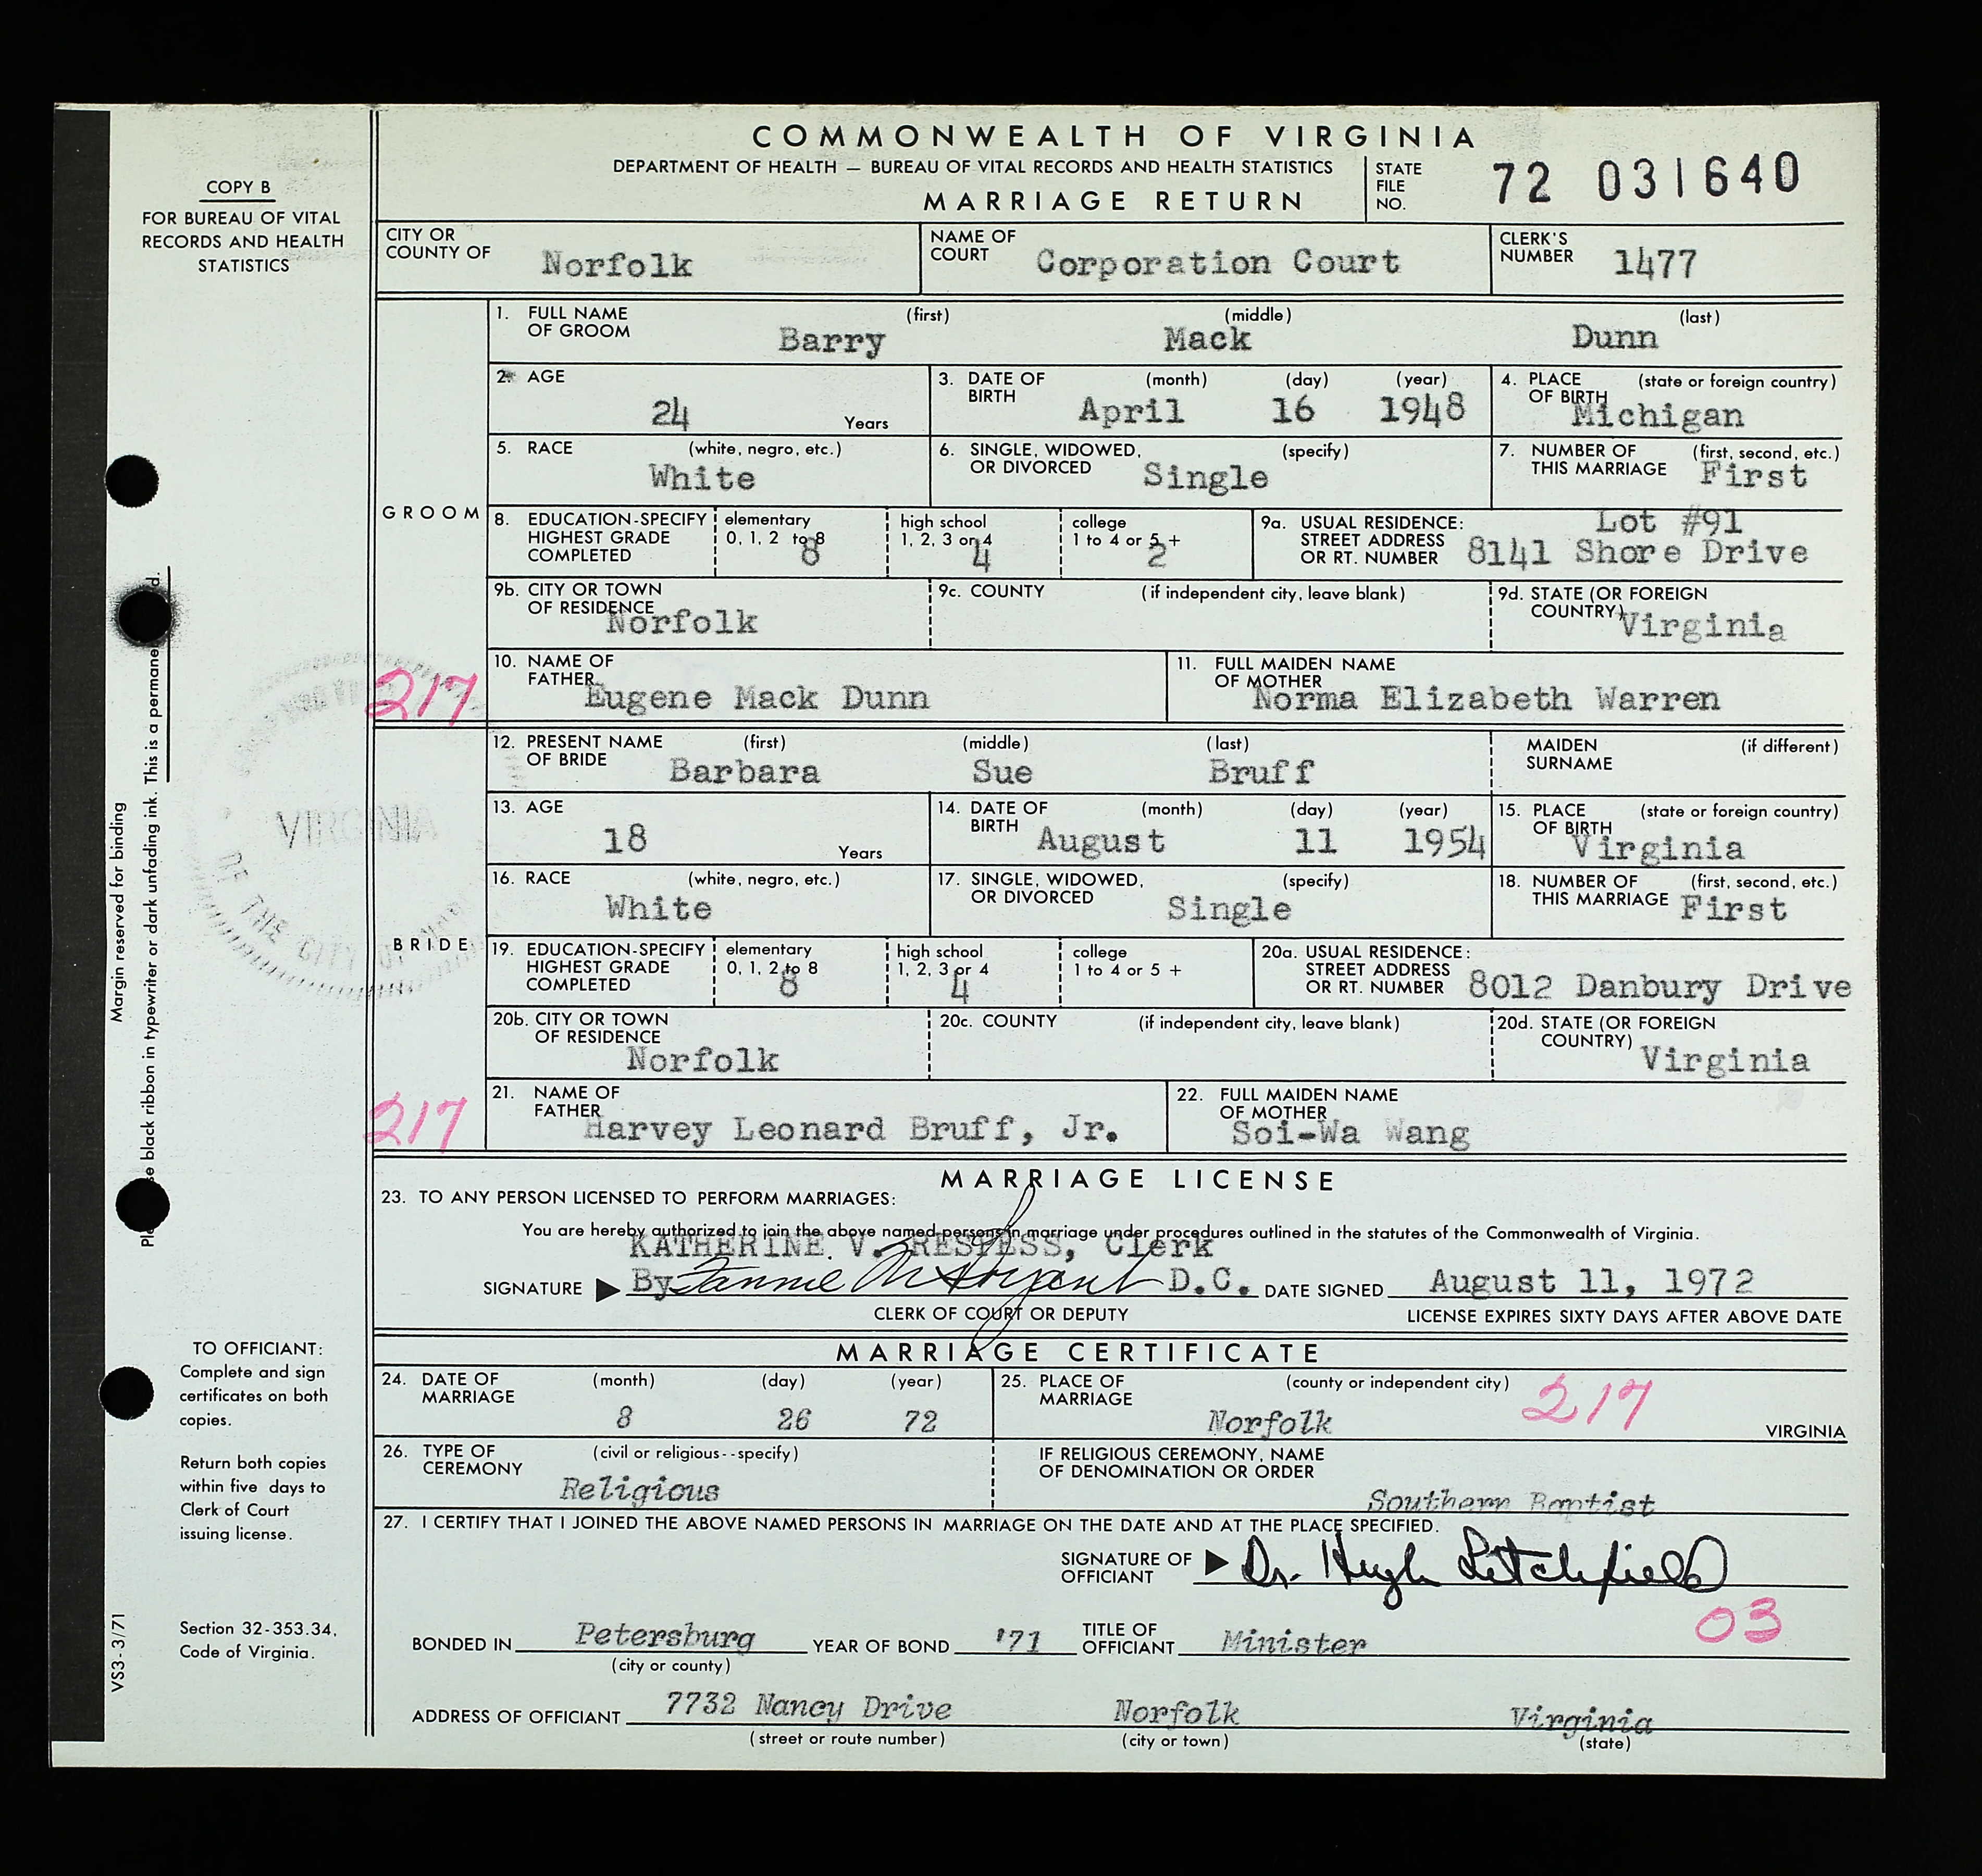 COMMONWEALTH OF VIRGINIA
DEPARTMENT OF HEALTH — BUREAU OF VITAL RECORDS AND HEALTH STATISTICS
MARRIAGE RETURN
STATE FILE NO. 72 031640
COPY B
FOR BUREAU OF VITAL
RECORDS AND HEALTH
STATISTICS
CITY OR COUNTY OF Norfolk NAME OF COURT Corporation Court CLERK'S NUMBER 1477
GROOM
1. FULL NAME OF GROOM (first) Barry (middle) Mack (last) Dunn
2. AGE 24 Years 3. DATE OF BIRTH (month) April (day) 16 (year) 1948 4. PLACE OF BIRTH (state or foreign country) Michigan
5. RACE (white, negro, etc.) White 6. SINGLE, WIDOWED, OR DIVORCED (specify) Single 7. NUMBER OF THIS MARRIAGE (first, second, etc.) First
8. EDUCATION-SPECIFY HIGHEST GRADE COMPLETED elementary 0, 1, 2 to 8 8 high school 1, 2, 3 or 4 4 college 1 to 4 or 5 + 2 9a. USUAL RESIDENCE: STREET ADDRESS OR RT. NUMBER Lot #91 8141 Shore Drive
9b. CITY OR TOWN OF RESIDENCE Norfolk 9c. COUNTY (if independent city, leave blank) 9d. STATE (OR FOREIGN COUNTRY) Virginia
10. NAME OF FATHER Eugene Mack Dunn 11. FULL MAIDEN NAME OF MOTHER Norma Elizabeth Warren
217
BRIDE
12. PRESENT NAME OF BRIDE (first) Barbara (middle) Sue (last) Bruff MAIDEN SURNAME (if different)
13. AGE 18 Years 14. DATE OF BIRTH (month) August (day) 11 (year) 1954 15. PLACE OF BIRTH (state or foreign country) Virginia
16. RACE (white, negro, etc.) White 17. SINGLE, WIDOWED, OR DIVORCED (specify) Single 18. NUMBER OF THIS MARRIAGE (first, second, etc.) First
19. EDUCATION-SPECIFY HIGHEST GRADE COMPLETED elementary 0, 1, 2 to 8 8 high school 1, 2, 3 or 4 4 college 1 to 4 or 5 + 20a. USUAL RESIDENCE: STREET ADDRESS OR RT. NUMBER 8012 Danbury Drive
20b. CITY OR TOWN OF RESIDENCE Norfolk 20c. COUNTY (if independent city, leave blank) 20d. STATE (OR FOREIGN COUNTRY) Virginia
21. NAME OF FATHER Harvey Leonard Bruff, Jr. 22. FULL MAIDEN NAME OF MOTHER Soi-Wa Wang
217
VIRGINIA
OF THE CITY OF
Margin reserved for binding
black ribbon in typewriter or dark unfading ink. This is a
MARRIAGE LICENSE
23. TO ANY PERSON LICENSED TO PERFORM MARRIAGES:
You are hereby authorized to join the above named persons in marriage under procedures outlined in the statutes of the Commonwealth of Virginia.
KATHERINE V. RESPESS, Clerk
SIGNATURE By Fannie M D.C. DATE SIGNED August 11, 1972
CLERK OF COURT OR DEPUTY LICENSE EXPIRES SIXTY DAYS AFTER ABOVE DATE
MARRIAGE CERTIFICATE
24. DATE OF MARRIAGE (month) 8 (day) 26 (year) 72 25. PLACE OF MARRIAGE (county or independent city) Norfolk 217 VIRGINIA
26. TYPE OF CEREMONY (civil or religious--specify) Religious IF RELIGIOUS CEREMONY, NAME OF DENOMINATION OR ORDER Southern Baptist
27. I CERTIFY THAT I JOINED THE ABOVE NAMED PERSONS IN MARRIAGE ON THE DATE AND AT THE PLACE SPECIFIED.
SIGNATURE OF OFFICIANT Dr. Hugh Litchfield
03
BONDED IN Petersburg YEAR OF BOND '71 TITLE OF OFFICIANT Minister
(city or county)
ADDRESS OF OFFICIANT 7732 Nancy Drive Norfolk Virginia
(street or route number) (city or town) (state)
TO OFFICIANT:
Complete and sign
certificates on both
copies.
Return both copies
within five days to
Clerk of Court
issuing license.
Section 32-353.34,
Code of Virginia.
VS3-3/71